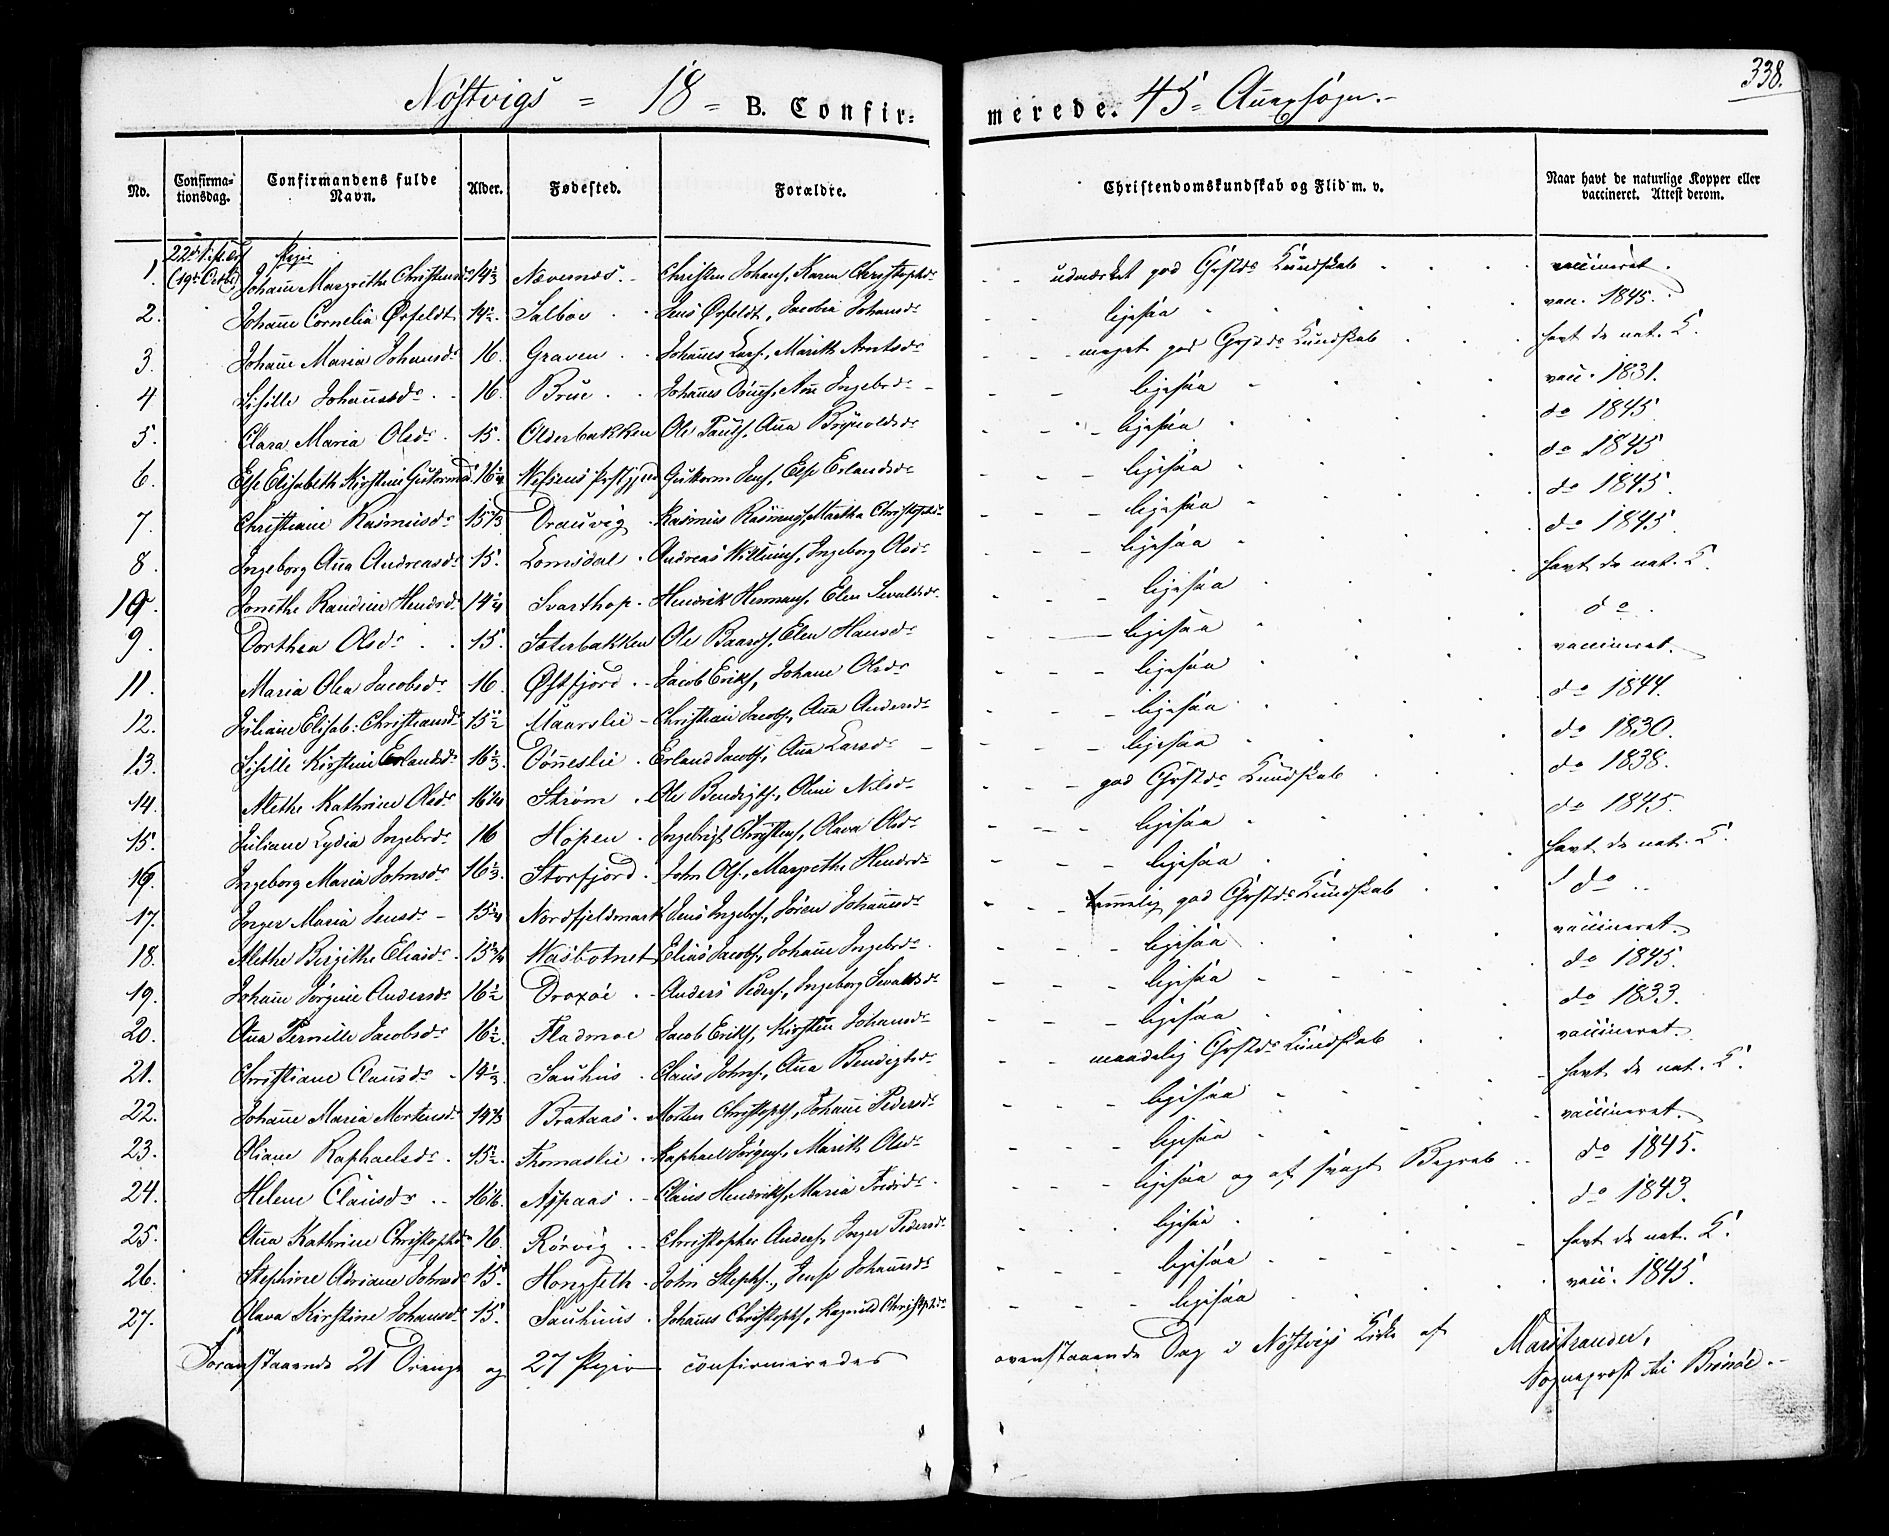 338.
Nøstvigs = 18 = B. Confirmerede. 45 = Annexsogn.
No. Confirmationsdag. Confirmandens fulde Navn. Alder. Fødested. Forældre. Christendomskundskab og Flid m. v. Naar havt de naturlige Kopper eller vaccineret. Attest derom.
(19de Octbr) Piger
1. Johanne Margrethe Christensdr 14 1/3 Nævernæs. Christen Johans, Karen Christophdr udmærket god Chrstds Kundskab vaccineret.
2. Johanne Cornelia Øxfeldt 14 1/2. Salbøe Jens Øxfeldt, Jacobia Johansdr ligesaa vacc. 1845.
3. Johanne Maria Johansdr 16. Graven Johannes Lars, Marith Arntsdr meget god Chrstds Kundskab havt de nat. K.
4 Sisille Johannesdr 16. Brue Johannes Ingebrdr ligesaa vacc. 1831.
5. Clara Maria Olsdr 15. Olderbakken Ole Pauls, Anna Brynoldsdr ligesaa do 1845.
6. Else Elisabeth Kirstine Guttormsd. 16 1/4 Vefsens Præstgjeld Guttorm Jens, Else Erlandsdr ligesaa do 1845
7. Christiane Rasmusdr 15 1/3 Drauvig Rasmus Rasmus, Martha Christophdr ligesaa do 1845.
8. Ingeborg Anna Andreasdr 15. Lomsdal Andreas Willums, Ingeborg Olsdr ligesaa do 1845.
10. Jonethe Randine Hendrdr 14 1/4 Svarthop Hendrik Hermans, Elen Sevaldsdr ligesaa havt de nat. K.
9. Dorthea Olsdr 15. Sæterbakken Ole Baards, Elen Hansdr ligesaa do
11. Maria Olea Jacobsdr 16. Østfjord Jacob Eriks, Johane Olsdr ligesaa vaccineret.
12. Juliane Elisab: Christiansdr 15 1/2 Maarslie Christian Jacobs, Anna Andersdr ligesaa do 1844.
13. Sisille Kirstine Erlandsdr 16 1/3. Tønneslie Erland Jacobs, Anna Larsdr ligesaa do 1830.
14. Methe Kathrine Olsdr 16 1/4 Strøm Ole Bendigts, Oline Nilsdr god Chrstds Kundskab do 1838.
15. Juliane Lydia Ingebrdr 16 Hopen Ingebrigt Christens, Olava Olsdr ligesaa do 1845.
16. Ingeborg Maria Johnsdr 16 1/3. Storfjord John Ols, Margrethe Hendrdr ligesaa havt de nat. K.
17. Inger Maria Jensdr 15 1/4 Nordfjeldmark Jens Ingebr, Søren Johannsdr temmelig god Chrstds Kundskab do
18. Methe Birgithe Eliasdr 15 3/4 Vasbotnet Elias Jacobs, Johanne Ingebrdr ligesaa vaccineret.
19. Johanne Jørgine Andersdr 16 1/2 Droxøe Anders Peders, Ingeborg Sevaldsdr ligesaa do 1845.
20. Anna Pernille Jacobsdr 16 1/2. Fladmoe Jacob Eriks, Kirsten Johansdr ligesaa do 1833.
21. Christiane Clausdr 14 1/3. Sauhus Claus Johns, Anna Bendigtsdr maadelig Chrstds Kundskab vaccineret.
22. Johanne Maria Mortensdr 14 1/3 Brataas Morten Christophs, Johanne Pedersdr ligesaa havt de nat. K.
23. Oliane Raphaelsdr 15 1/2. Thomaslie Raphael Jørgens, Marith Olsdr ligesaa vaccineret.
24. Helene Clausdr 16 1/6. Aspaas Claus Hendriks, Maria Fredrdr ligesaa og af svagt Begreb do 1845.
25. Anna Kathrine Christophdr 16. Rørvig Christopher Anders, Inger Pedersdr ligesaa do 1843.
26. Stephine Adriane Johnsdr 15. Hongseth John Stephs., Jense Johannsdr ligesaa havt de nat. K.
27. Olava Kirstine Johansdr 15. Sauhuus Johannes Christophs, Ragnild Christphdr ligesaa vacc. 1845.
Foranstaaende 21 Drenge og 27 Piger confirmeredes ovenstaaende Dag i Nøstvigs Kirke af
Sognepræst til Brønøe.